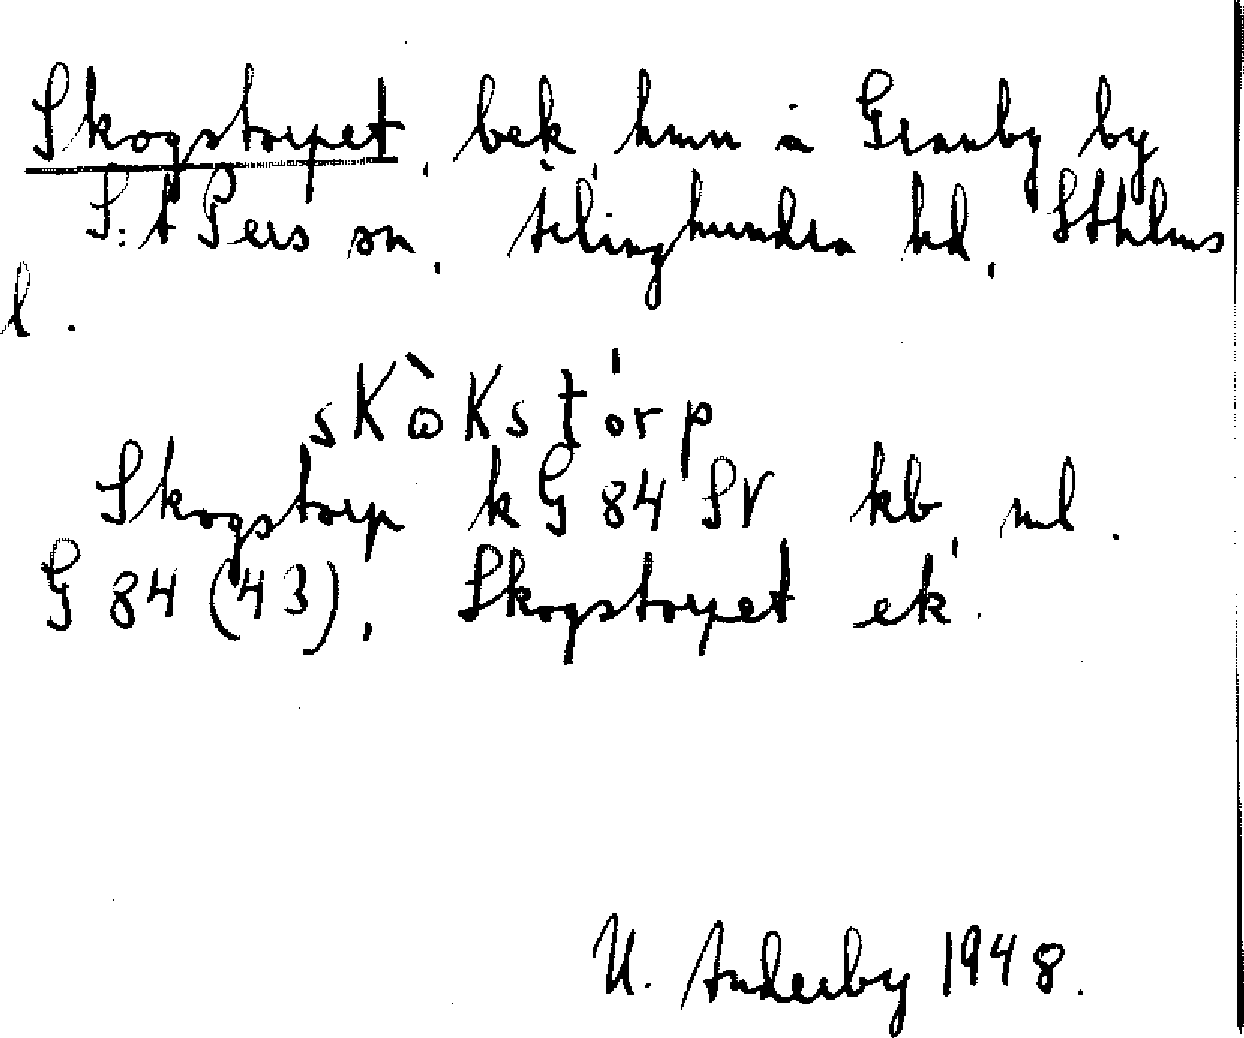 Skogstorpet, bek. hmn i Granby by
S:t Pers sn, Ärlinghundra hd, Sthlms
l.
sKὼKstórp
Skogstorp kG 84 SV kb, ml.
G 84 (43), Skogstorpet ek.
U. Anderby 1948.